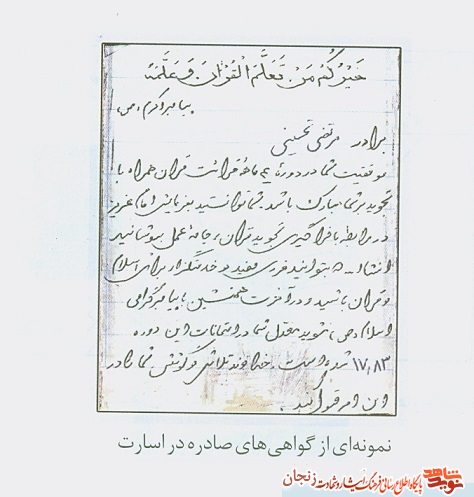 خَیْرُکُمْ مَنْ تَعَلَّمَ الْقُرْآنَ وَ عَلَّمَهُ
پیامبر اکرم (ص)
برادر مرتضی تحسینی
موفقیت شما در دوره‌ی یک ماهه قرائت قرآن همراه با
تجوید بر شما مبارک باشد. شما توانستید بفرمایش امام عزیز
در رابطه با فراگیری تجوید قرآن، جامهٔ عمل بپوشانید
انشاء... ه بتوانید فردی مفید و خدمتگزار برای اسلام
و قرآن باشید و در آخرت همنشین با پیامبر گرامی
اسلام (ص) شوید معدل شما در امتحانات این دوره
۱۷٫۸۳ شده است. خداوند تلاش و کوشش شما را در
این امر قبول کند.
نمونه‌ای از گواهی‌های صادره در اسارت
نوید شاهد
پایگاه اطلاع رسانی فرهنگ ایثار و شهادت زنجان